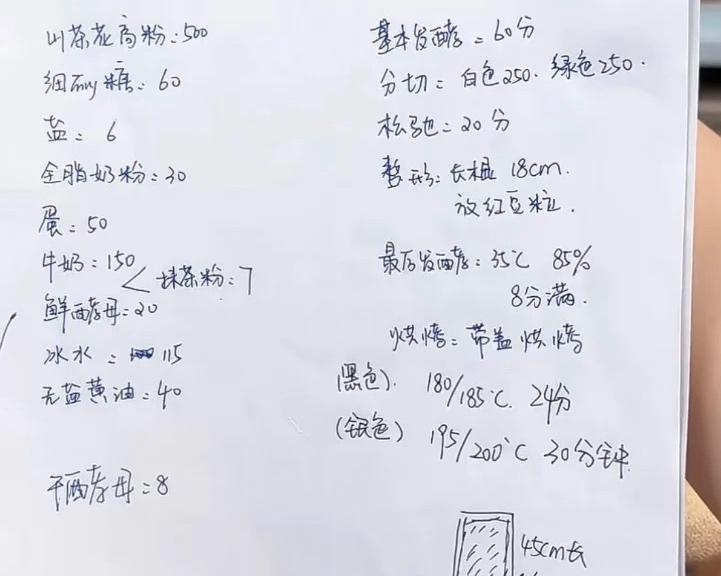 山茶花高粉:500
细砂糖:60
盐:6
全脂奶粉:30
蛋:50
牛奶:150
抹茶粉:7
鲜酵母:20
冰水:115
无盐黄油:40
干酵母:8
基本发酵:60分
分切:白色250.绿色250.
松弛:20分
整形:长棍 18cm.
放红豆粒.
最后发酵:35℃ 85%
8分满.
烘烤:带盖烘烤
(黑色). 180/185℃. 24分
(银色) 195/200℃ 30分钟
45cm长